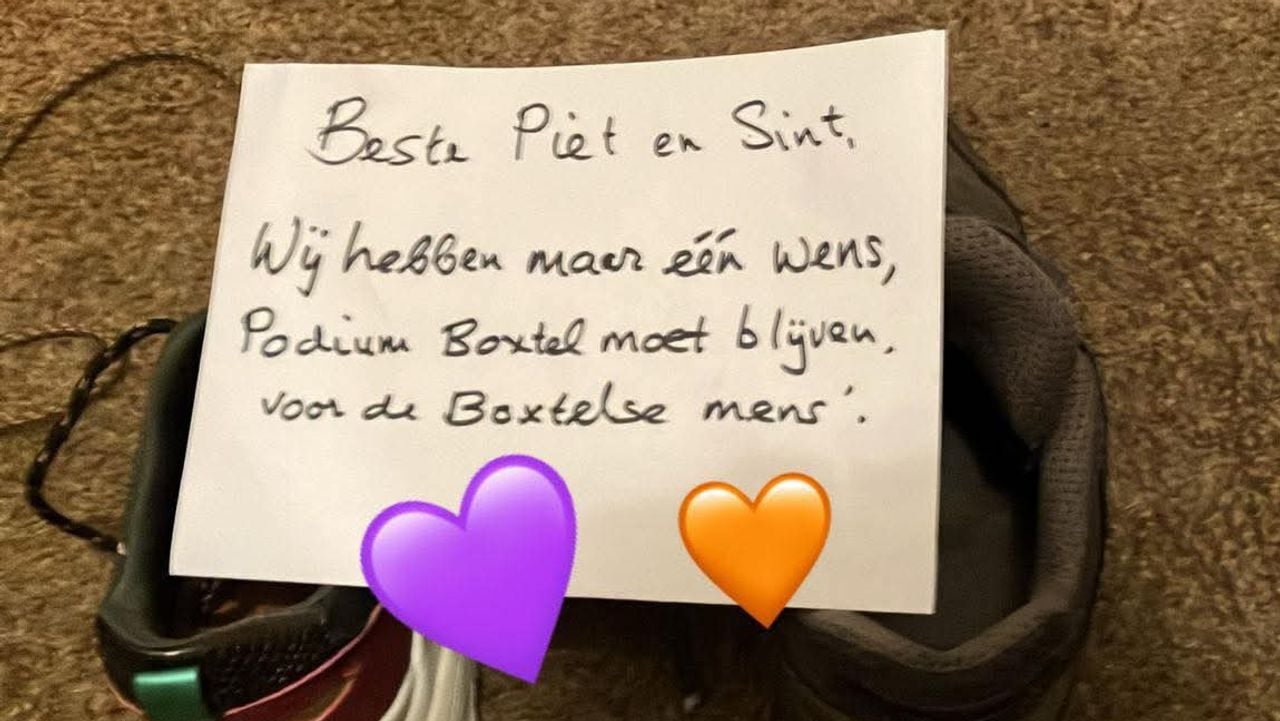 Beste Piet en Sint,
Wij hebben maar één wens,
Podium Boxtel moet blijven.
voor de Boxtelse mens'.